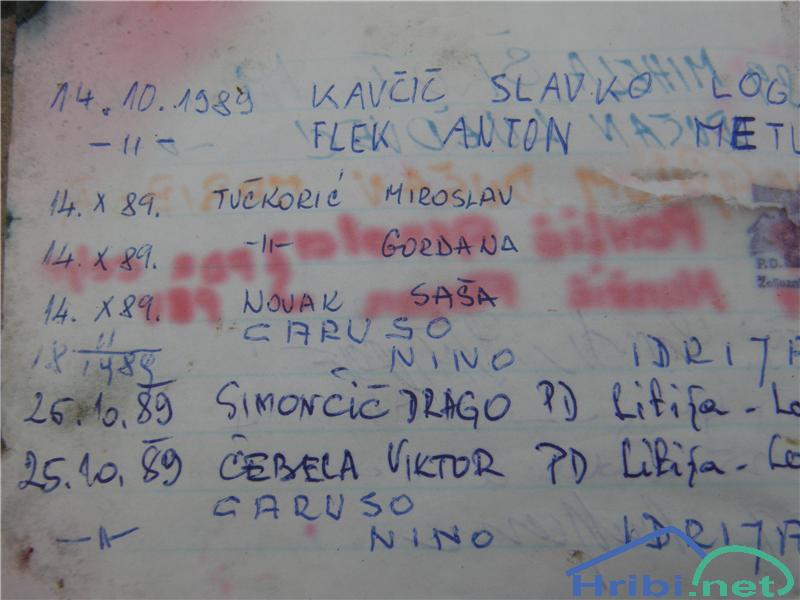 14.10.1989 KAVČIČ SLAVKO LOG
-11- FLEK ANTON METL
14. X 89. TUČKORIĆ MIROSLAV
14. X 89. -11- GORDANA
14. X 89. NOVAK SAŠA
CARUSO
18 11 1989 NINO IDRIJA
25.10.89 SIMONČIČ DRAGO PD Litija - Lo
25.10.89 ČEBELA VIKTOR PD Litija - Lo
CARUSO
-11- NINO IDRIJA
P.D.
Hribi.net